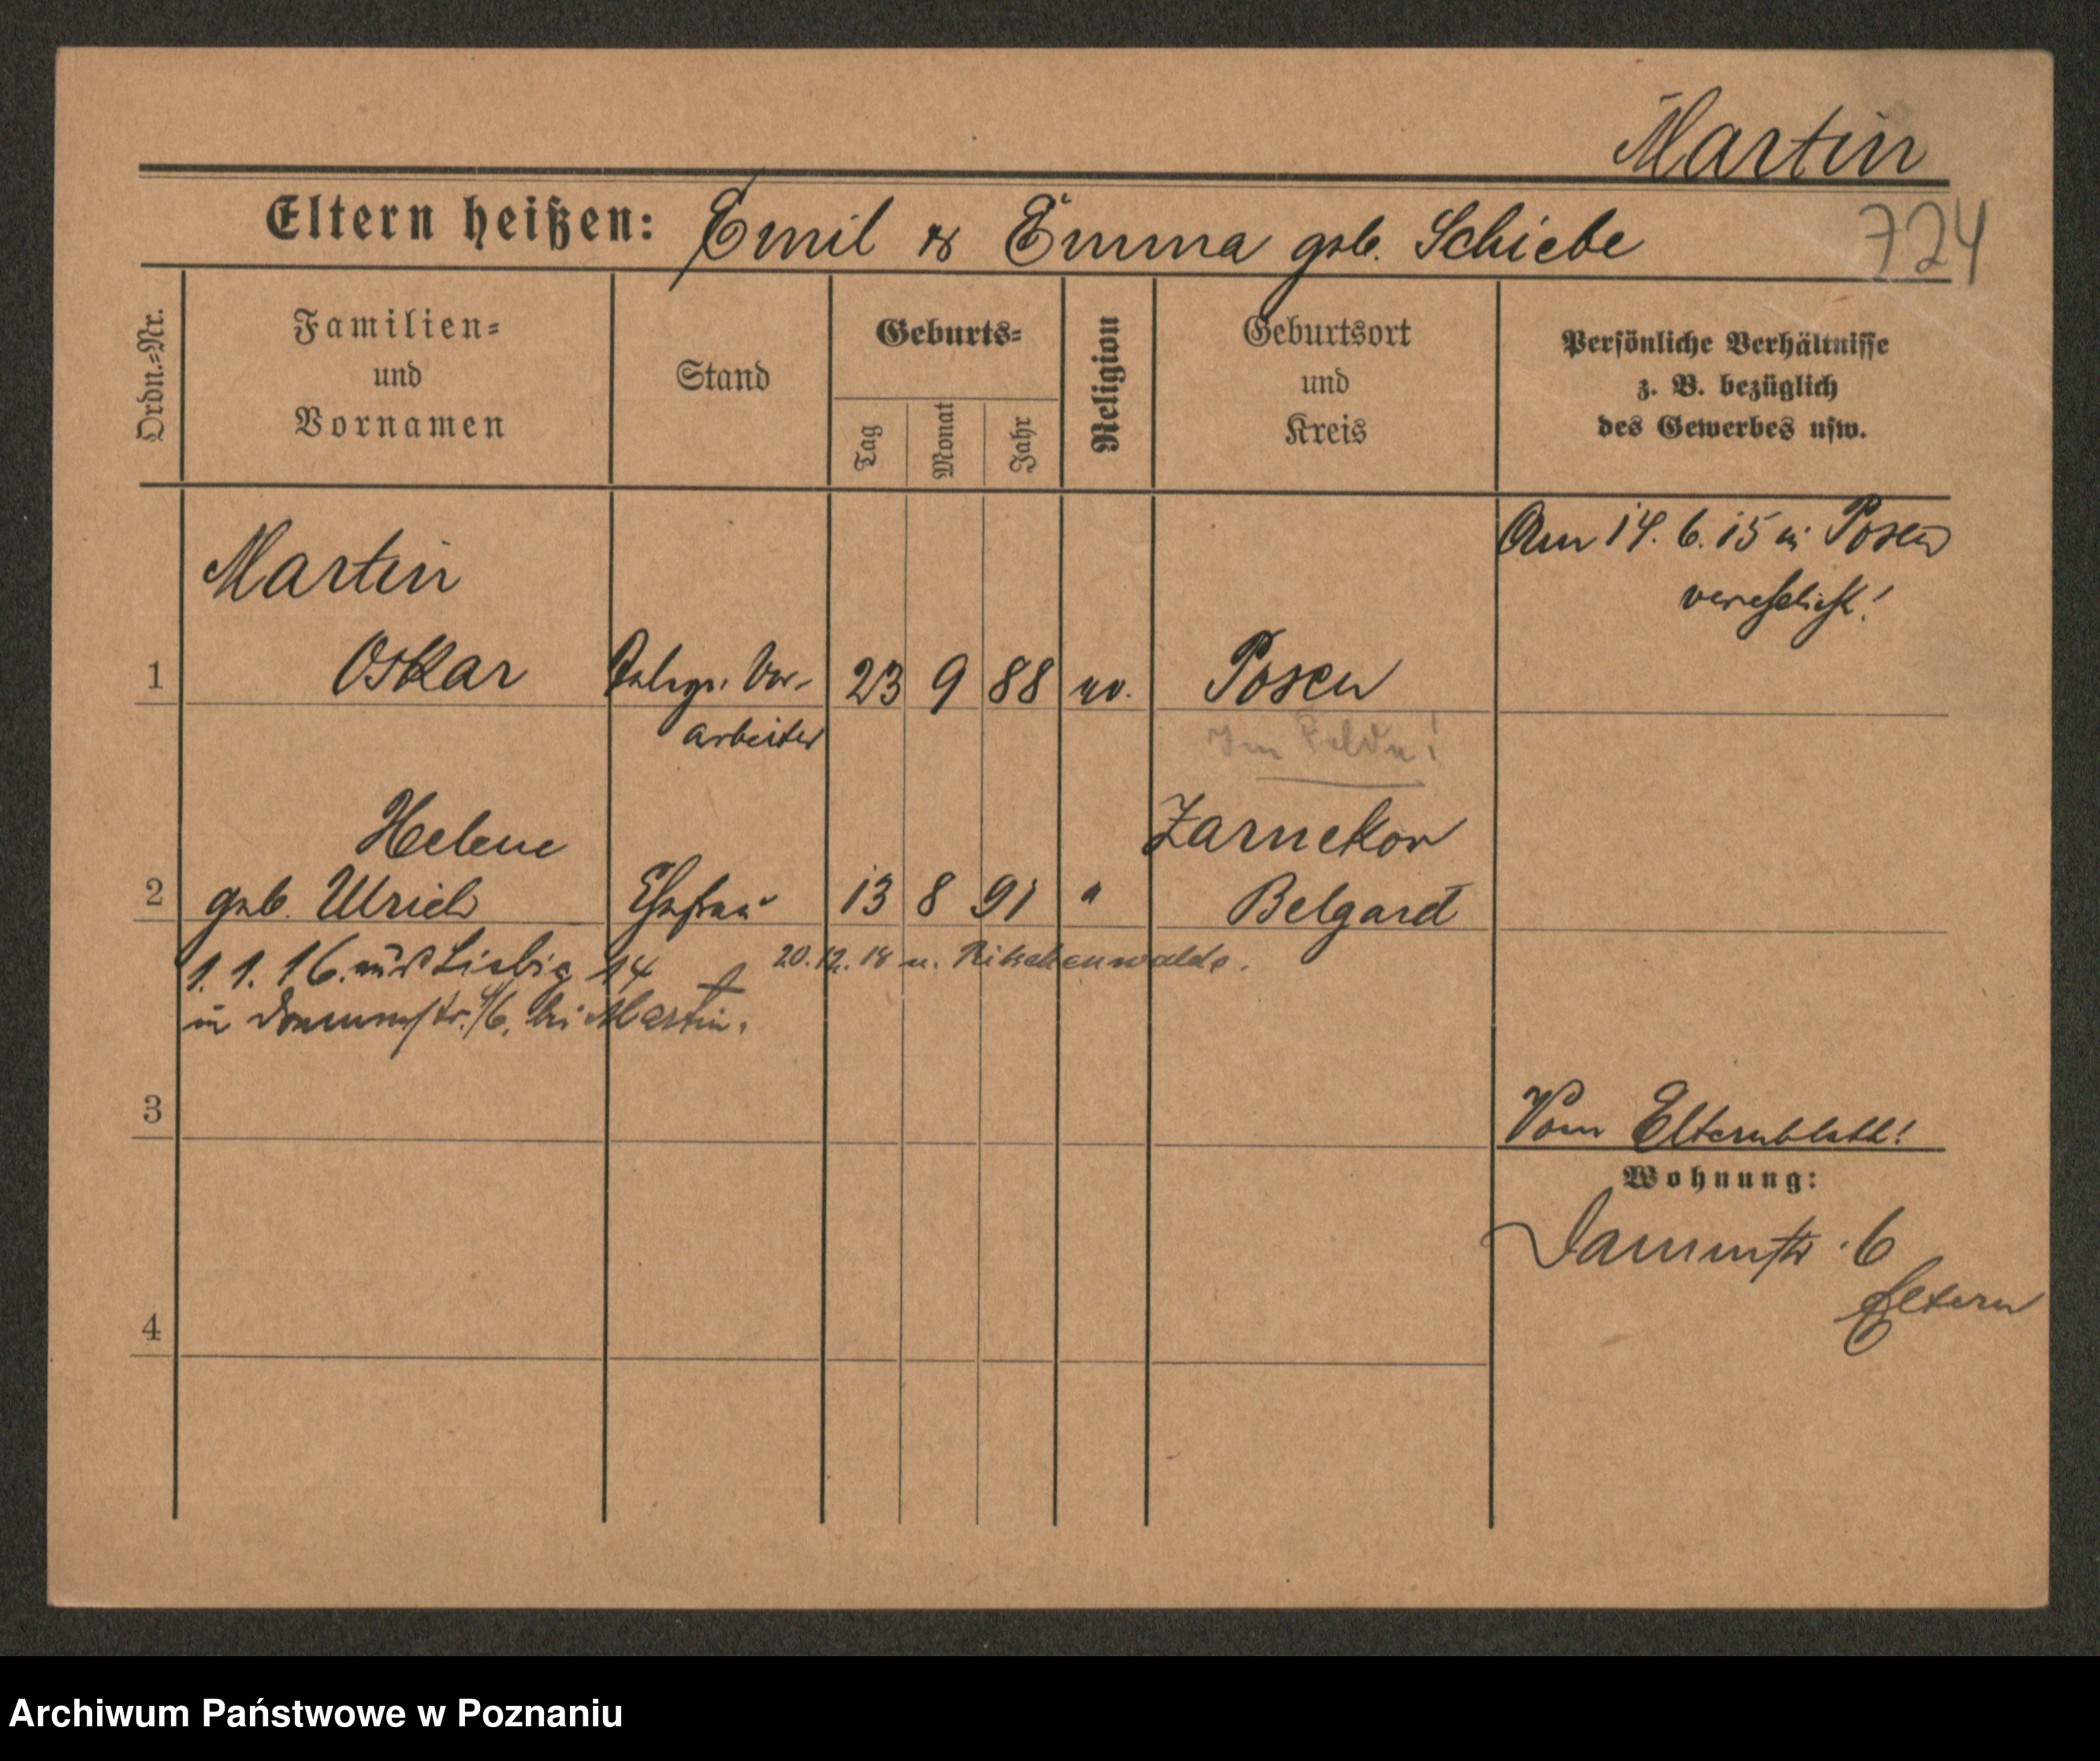 Martin
Eltern heißen: Emil & Emma geb. Schiebe
724
Ordn.=Nr.
Familien=
und
Vornamen
Stand
Geburts=
Tag
Monat
Jahr
Religion
Geburtsort
und
Kreis
Persönliche Verhältnisse
z. B. bezüglich
des Gewerbes usw.
Am 14. 6. 15 in Posen
verehelicht!
Martin
1 Oskar Vor-
arbeiter
23 9 88 ev. Posen
Im Felde!
Helene Zarnekow
2 geb. Ulrich Ehefrau 13 8 91 " Belgard
1. 1. 16. aus Liebig 14
in Dammstr. 6, bei Martin.
20. 12. 18 n. Ritschenwalde.
3
Vom Elternblatt!
Wohnung:
Dammstr. 6
Eltern
4
Archiwum Państwowe w Poznaniu